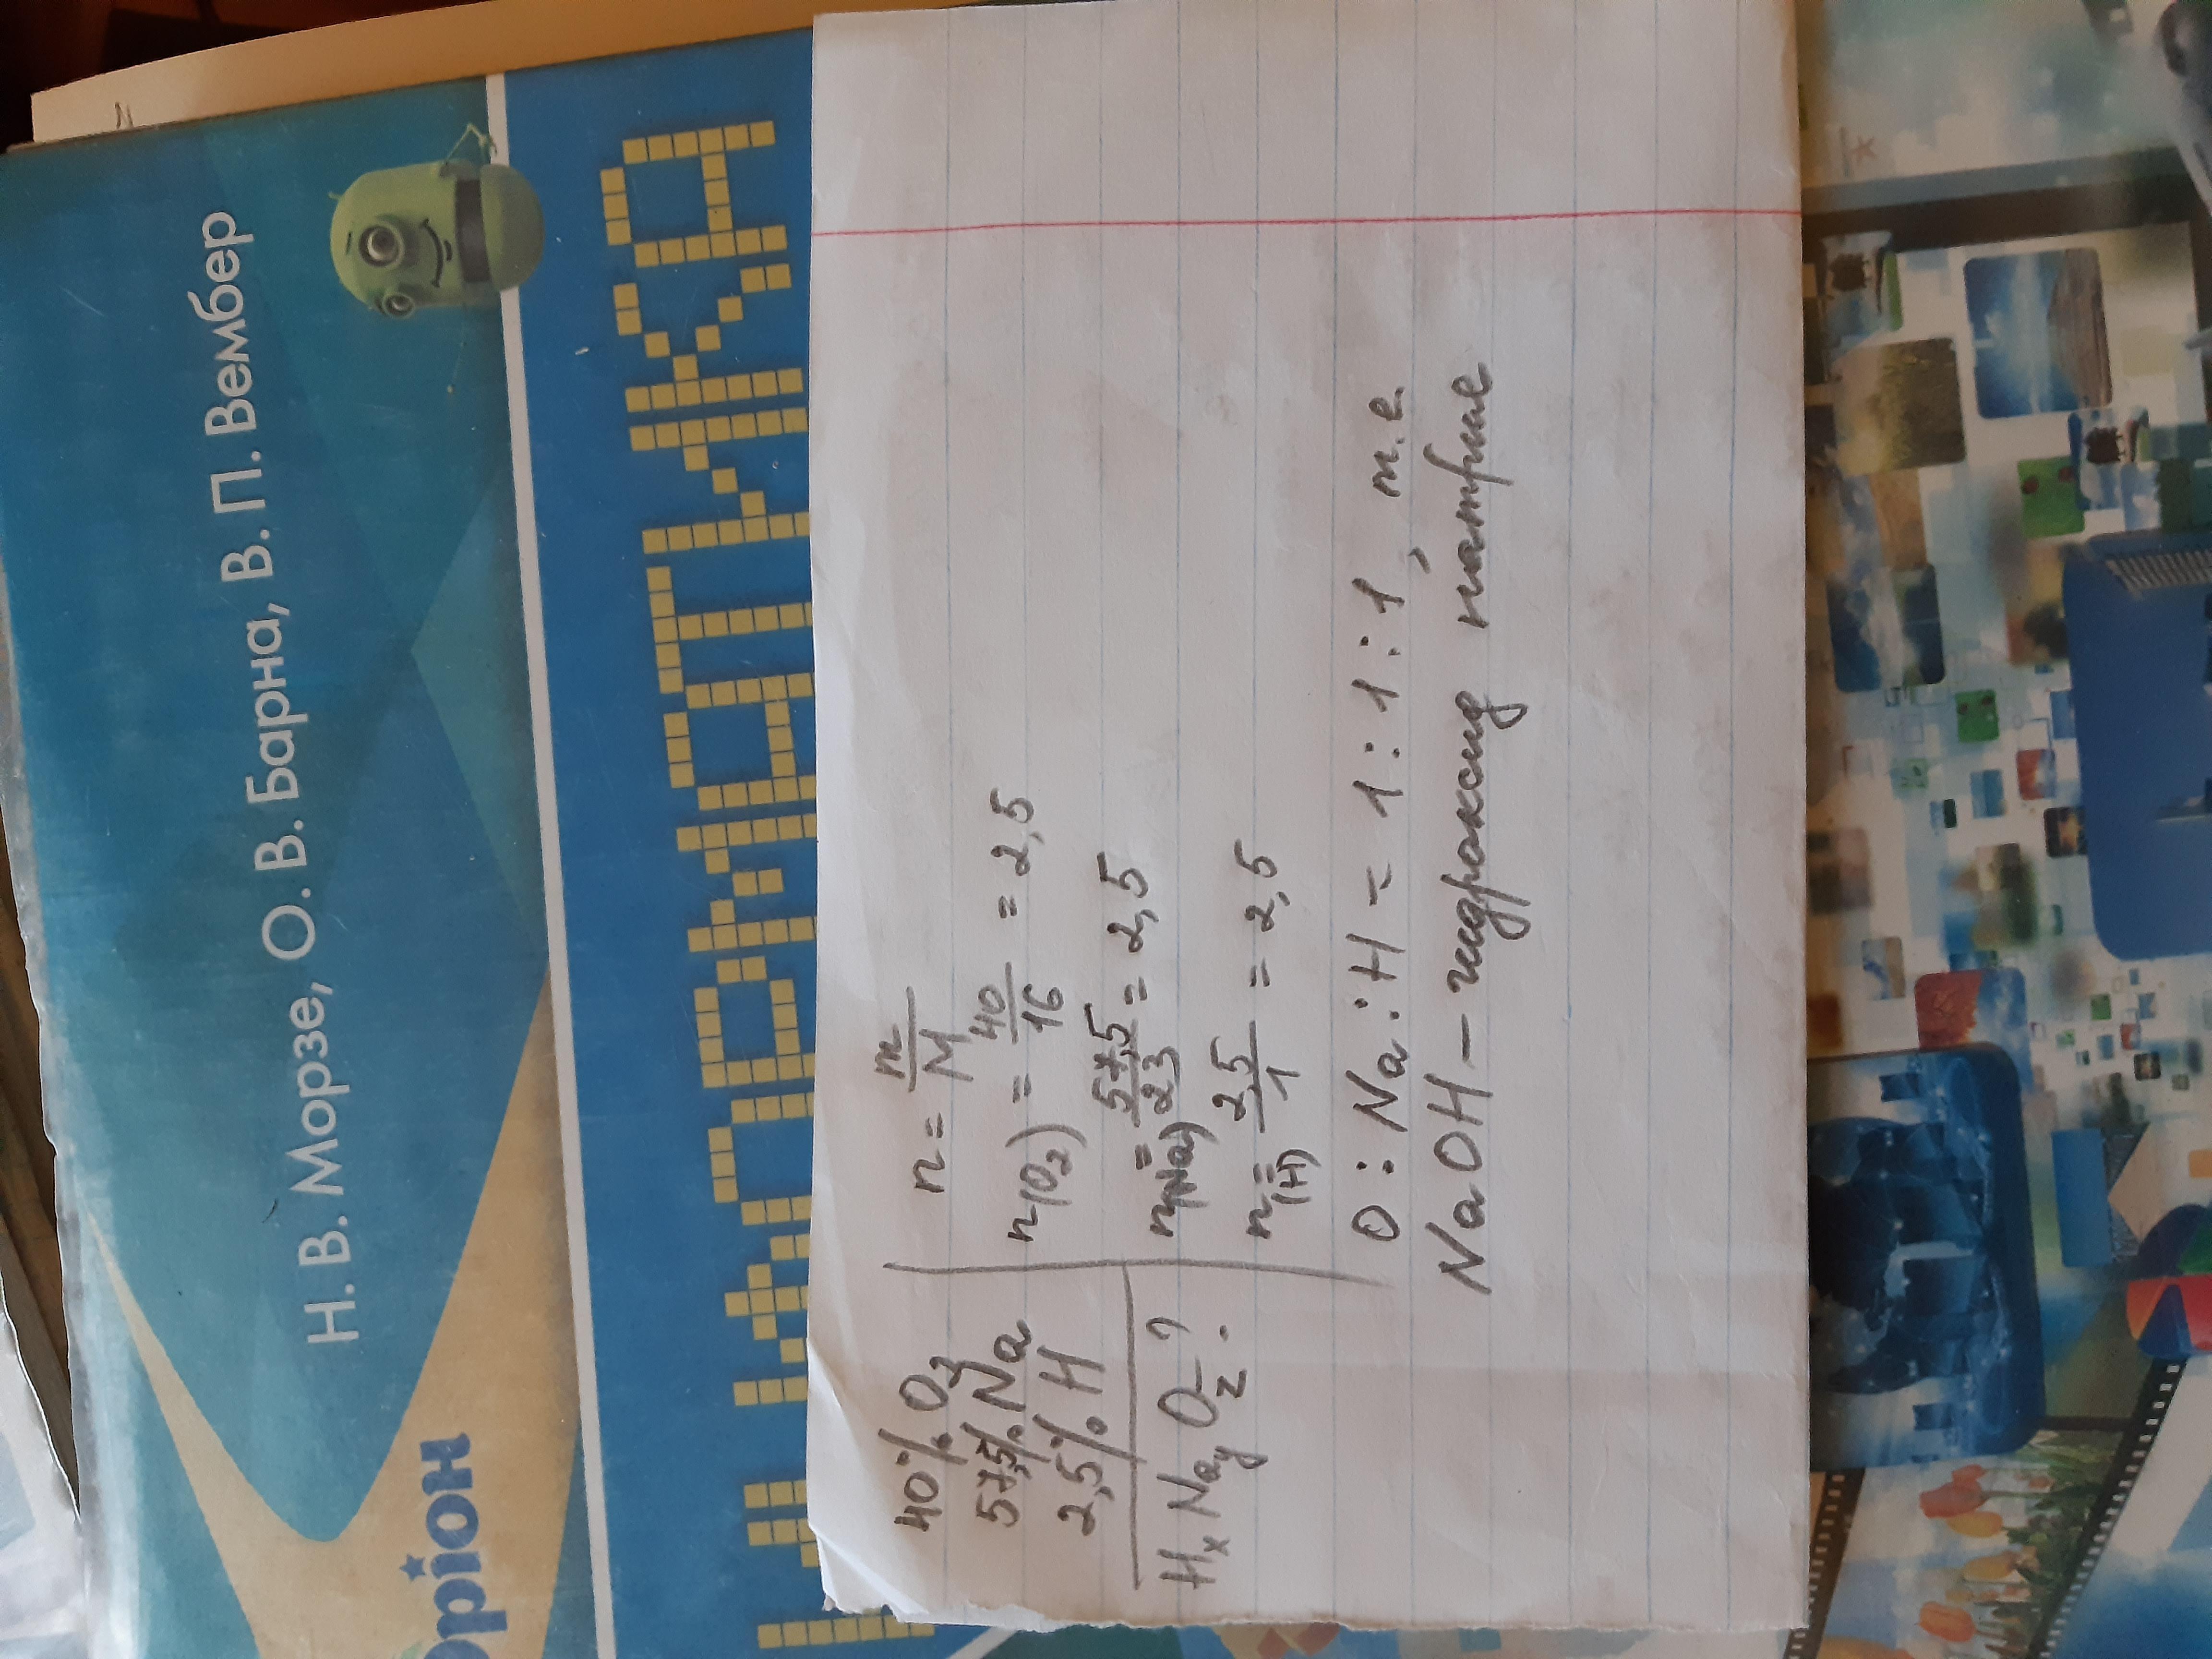 Н. В. Морзе, О. В. Барна, В. П. Вембер
Оріон
ІНФОРМАТИКА
40% O2
57,5% Na
2,5% H
HxNayOz ?
n = m/M
n(O2) = 40/16 = 2,5
n(Na) = 57,5/23 = 2,5
n(H) = 2,5/1 = 2,5
O : Na : H = 1 : 1 : 1, т.е.
NaOH – гидроксид натрие